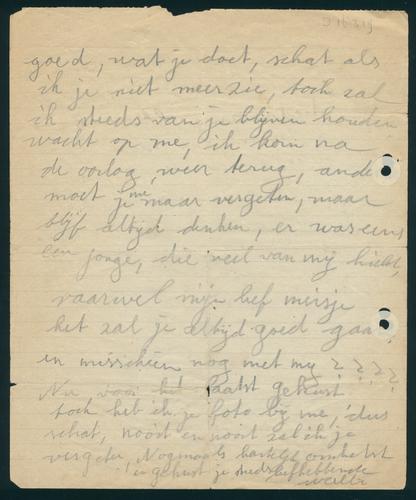 goed, wat je doet, schat als
ik je niet meer zie, toch zal
ik steeds van je blijven houden
wacht op me, ik kom na
de oorlog weer terug, ande
moet je me maar vergeten, maar
blijf altijd denken, er was eens
een jonge, die veel van mij hield,
vaarwel mijn lief meisje
het zal je altijd goed gaan
en misschien nog met my ? ? ? ?
Nu voor het laatst gekust
toch heb ik je foto bij me, dus
schat, nooit en nooit zal ik je
vergeten. Nogmaals hartelijk omhelst
en gekust je steeds liefhebbende